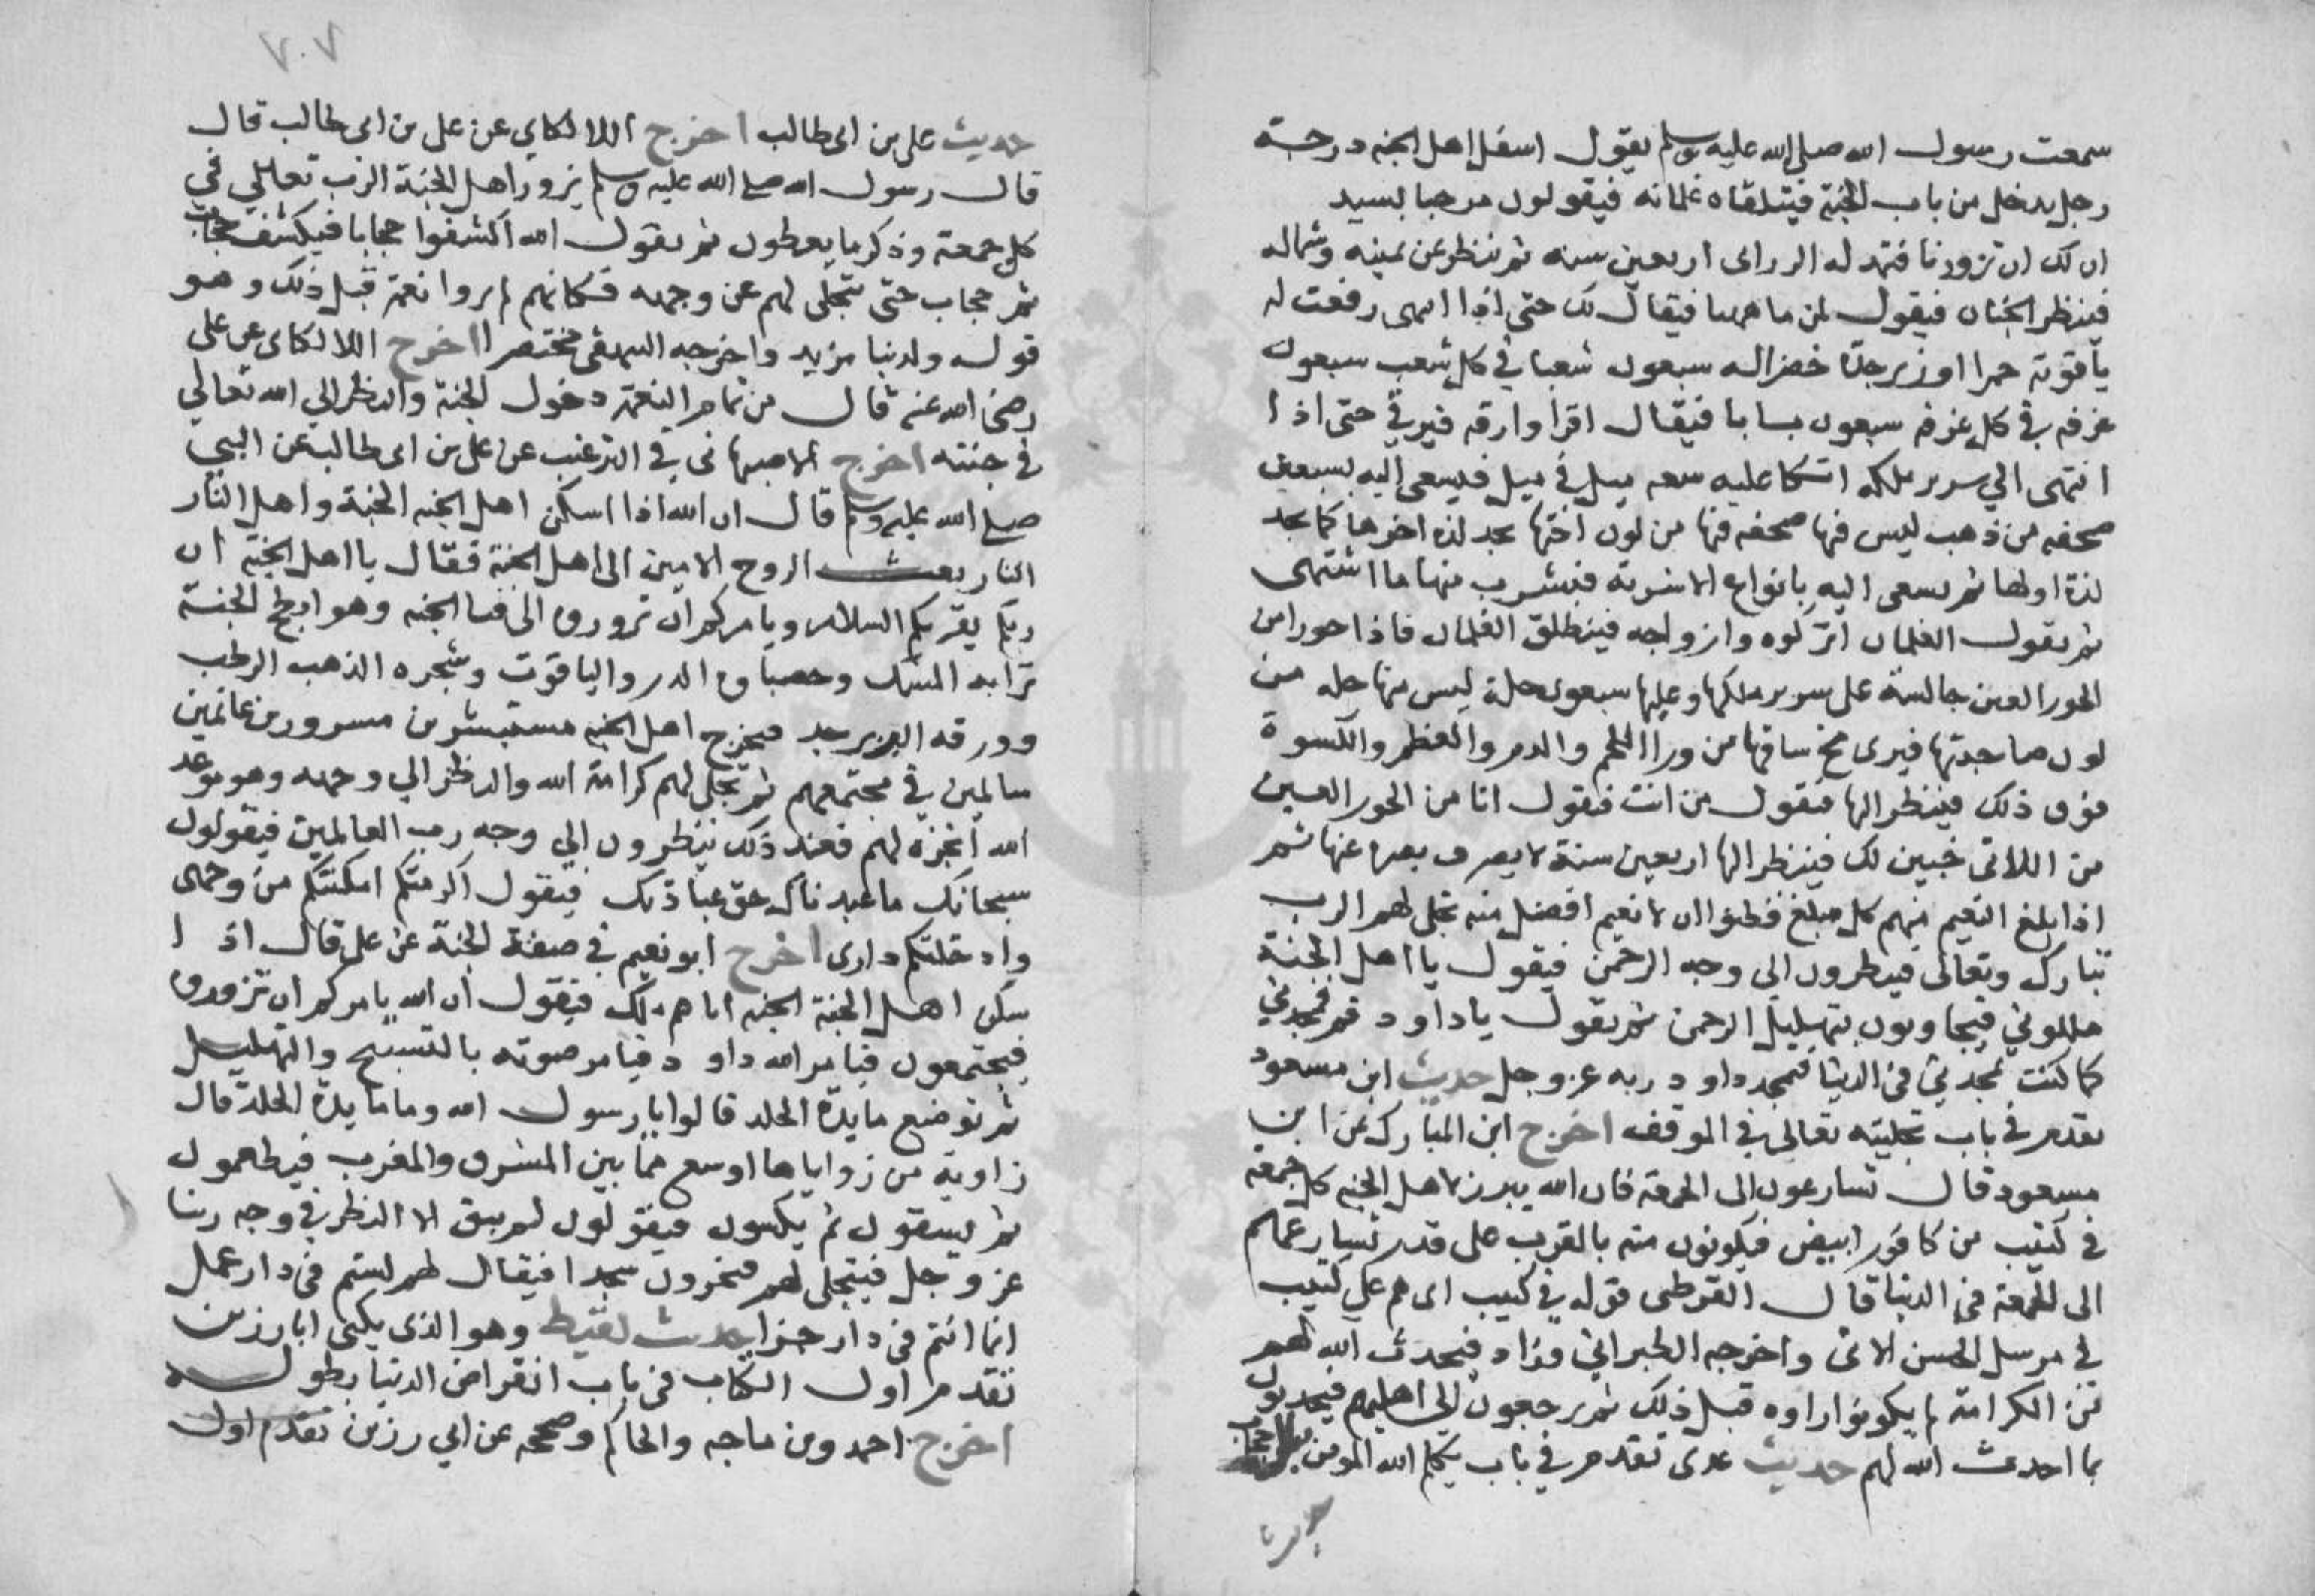 سمعت رسول الله صلى الله عليه وسلم يقول اسفل اهل الجنه درجة
رجل يدخل من باب الجنة فيتلقاه غلمانه فيقولون مرحبا بسيدنا
ان لك ان تزورنا فتمد له الزرابى اربعين سنه ثم ينظر عن يمينه وشماله
فينظر الجنان فيقول لمن ما ههنا فيقال لك حتى اذا انتهى رفعت له
ياقوتة حمرا او زبرجدة خضرا له سبعون شعبا في كل شعب سبعون
غرفه في كل غرفه سبعون بابا فيقال اقرا وارقه فيرقي حتى اذا
انتهى الي سرير ملكه اتكا عليه سعه ميل في ميل فيسعى اليه بسبعين
صحفه من ذهب ليس فيها صحفه فيها من لون اختها يجد لذه اخرها كما يجد
لذة اولها ثم يسعى اليه بانواع الاشربة فيشرب منها ما اشتهى
ثم يقول الغلمان اتركوه وازواجه فينطلق الغلمان فاذا حورا من
الحور العين جالسة على سرير ملكها وعليها سبعون حلة ليس منها حله من
لون صاحبتها فيرى مخ ساقها من ورا اللحم والدم والعظم والكسوة
فوق ذلك فينظر اليها فيقول من انت فتقول انا من الحور العين
من اللاتى خبين لك فينظر اليها اربعين سنة لا يصرف بصره عنها ثم
اذا بلغ النعيم منهم كل مبلغ فظنوا ان لا نعيم افضل منه تجلى لهم الرب
تبارك وتعالى فينظرون الى وجه الرحمن فيقول يا اهل الجنة
هللوني فيجاوبون بتهليل الرحمن ثم يقول يا داود قم فمجدني
كما كنت تمجدني في الدنيا فيمجد داود ربه عز وجل حديث ابن مسعود
تقدم في باب تجليته تعالى في الموقف اخرج ابن المبارك عن ابن
مسعود قال تسارعون الى الجمعة فان الله يبرز لاهل الجنه كل جمعة
في كثيب من كافور ابيض فيكونون منه بالقرب على قدر تسارعهم
الى الجمعة في الدنيا قال القرطبى قوله في كثيب اى هم علي كثيب
في مرسل الحسن الاتى واخرجه الطبراني وزاد فيحدث الله لهم
من الكرامة لم يكونوا راوه قبل ذلك ثم يرجعون الى اهليهم فيحدثون
بما احدث الله لهم حديث عدى تقدم في باب يكلم الله المومن
حديث
٧٠٧
حديث على بن ابى طالب اخرج اللالكاي عن على بن ابى طالب قال
قال رسول الله صلى الله عليه وسلم يزور اهل الجنة الرب تعالي في
كل جمعة وذكر ما يعطون ثم يقول الله اكشفوا حجابا فيكشف حجاب
ثم حجاب حتى يتجلى لهم عن وجهه فكانهم لم يروا نعمة قبل ذلك وهو
قوله ولدينا مزيد واخرجه البيهقى مختصرا اخرج اللالكاى عن على
رضى الله عنه قال من تمام النعمة دخول الجنة والنظر الي الله تعالي
في جنته اخرج الاصبهانى في الترغيب عن على بن ابى طالب عن النبي
صلى الله عليه وسلم قال ان الله اذا اسكن اهل الجنه الجنة واهل النار
النار بعث الروح الامين الى اهل الجنة فقال يا اهل الجنة ان
ربكم يقريكم السلام ويامركم ان تزوروه الى فنا الجنه وهو ابطح الجنة
ترابه المسك وحصباوه الدر والياقوت وشجره الذهب الرطب
وورقه الزبرجد فيخرج اهل الجنه مستبشرين مسرورين غانمين
سالمين في مجتمعهم ثم تجلى لهم كرامة الله والنظر الي وجهه وهو موعد
الله انجزه لهم فعند ذلك ينظرون الي وجه رب العالمين فيقولون
سبحانك ما عبدناك حق عبادتك فيقول اكرمتكم امكنتكم من وجهى
وادخلتكم دارى اخرج ابو نعيم في صفة الجنة عن على قال اذا
سكن اهل الجنة الجنه اتاهم ملك فيقول ان الله يامركم ان تزوروه
فيجتمعون فيامر الله داود فيامر صوته بالتسبيح والتهليل
ثم توضع مايدة الخلد قالوا يا رسول الله وما مايدة الخلد قال
زاوية من زواياها اوسع مما بين المشرق والمغرب فيطعمون
ثم يسقون ثم يكسون فيقولون لم يبق الا النظر في وجه ربنا
عز وجل فيتجلى لهم فيخرون سجدا فيقال لهم لستم في دار عمل
انما انتم في دار جزا حديث لقيط وهو الذى يكنى ابا رزين
تقدم اول الكتاب في باب انقراض الدنيا بطوله
اخرج احمد وبن ماجه والحاكم وصححه عن ابي رزين تقدم اول